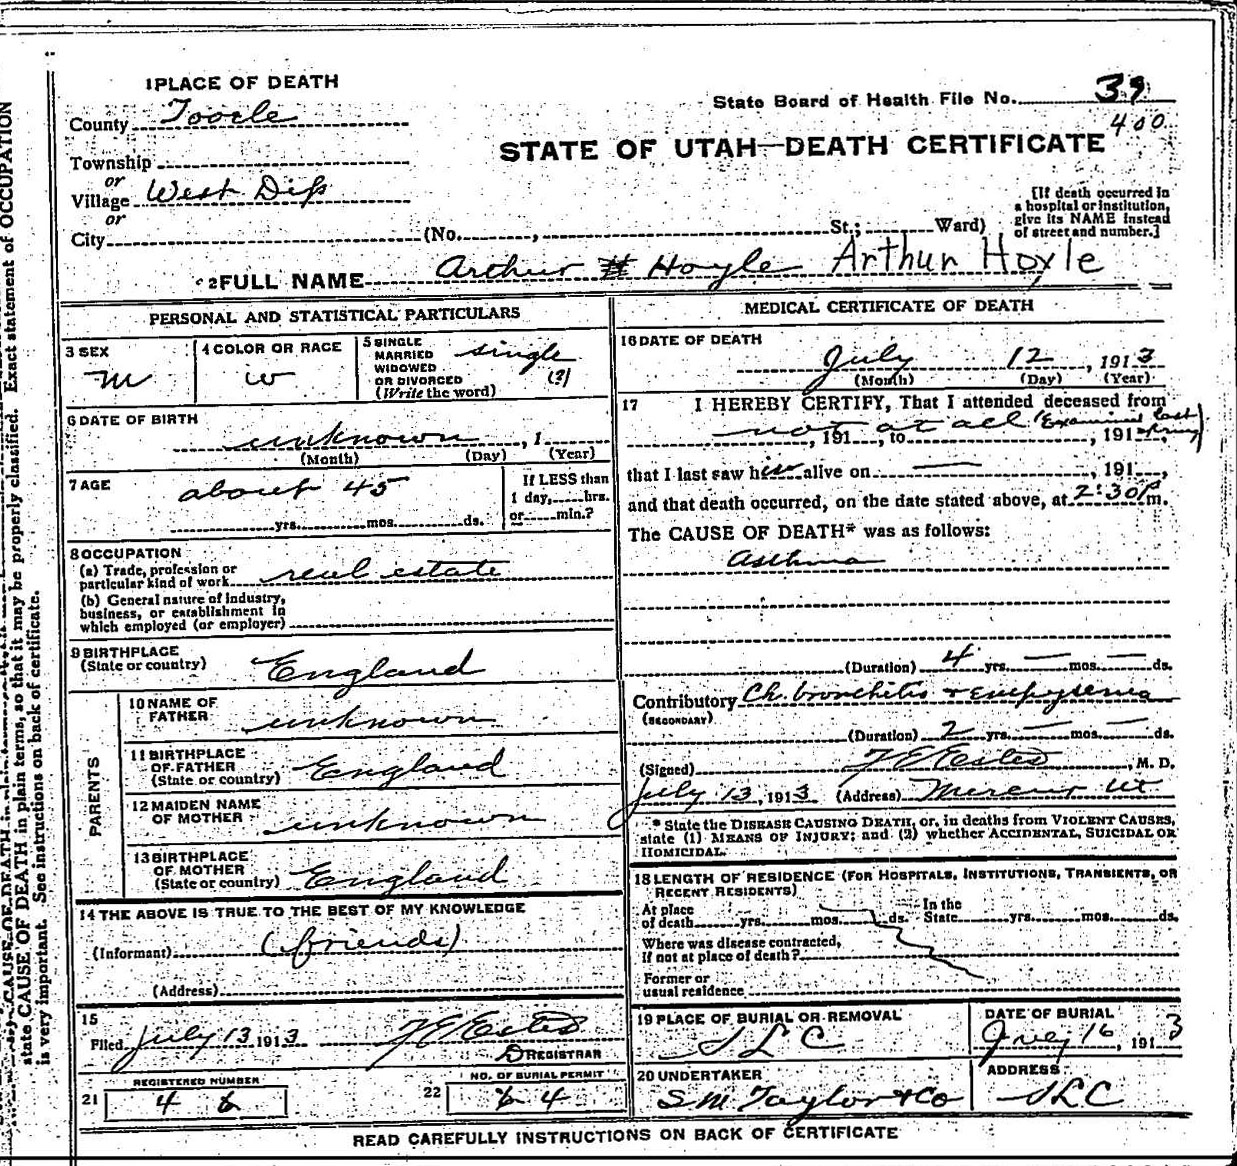 1 PLACE OF DEATH
State Board of Health File No. 39
400
County Tooele
STATE OF UTAH—DEATH CERTIFICATE
Township
or
Village West Dip
or
City (No. , St.; Ward)
[If death occurred in
a hospital or institution,
give its NAME instead
of street and number.]
2 FULL NAME Arthur H Hoyle Arthur Hoyle
PERSONAL AND STATISTICAL PARTICULARS
3 SEX
M
4 COLOR OR RACE
W
5 SINGLE
MARRIED
WIDOWED
OR DIVORCED
(Write the word)
single
(?)
6 DATE OF BIRTH
unknown , 1
(Month) (Day) (Year)
7 AGE
about 45
yrs. mos. ds.
If LESS than
1 day, hrs.
or min.?
8 OCCUPATION
(a) Trade, profession or
particular kind of work real estate
(b) General nature of industry,
business, or establishment in
which employed (or employer)
9 BIRTHPLACE
(State or country) England
PARENTS
10 NAME OF
FATHER unknown
11 BIRTHPLACE
OF FATHER
(State or country) England
12 MAIDEN NAME
OF MOTHER unknown
13 BIRTHPLACE
OF MOTHER
(State or country) England
14 THE ABOVE IS TRUE TO THE BEST OF MY KNOWLEDGE
(Informant) (friends)
(Address)
15
Filed July 13 1913 F E Estes
D REGISTRAR
REGISTERED NUMBER
21 4 6
NO. OF BURIAL PERMIT
22 4
MEDICAL CERTIFICATE OF DEATH
16 DATE OF DEATH
July 12 , 1913
(Month) (Day) (Year)
17 I HEREBY CERTIFY, That I attended deceased from
not at all (Examined last
, 191 , to , 191 spring)
that I last saw him alive on — , 191 ,
and that death occurred, on the date stated above, at 2:30 P m.
The CAUSE OF DEATH* was as follows:
Asthma
(Duration) 4 yrs. — mos. — ds.
Contributory Ch. bronchitis + emphysema
(SECONDARY)
(Duration) 2 yrs. — mos. — ds.
(Signed) F E Estes , M. D.
July 13, 1913 (Address) Mercur Ut
* State the DISEASE CAUSING DEATH, or, in deaths from VIOLENT CAUSES,
state (1) MEANS OF INJURY; and (2) whether ACCIDENTAL, SUICIDAL OR
HOMICIDAL.
18 LENGTH OF RESIDENCE (FOR HOSPITALS, INSTITUTIONS, TRANSIENTS, OR
RECENT RESIDENTS)
At place
of death yrs. mos. ds.
In the
State yrs. mos. ds.
Where was disease contracted,
if not at place of death?
Former or
usual residence
19 PLACE OF BURIAL OR REMOVAL
S L C
DATE OF BURIAL
July 16, 1913
20 UNDERTAKER
S M Taylor + Co
ADDRESS
S L C
READ CAREFULLY INSTRUCTIONS ON BACK OF CERTIFICATE
state CAUSE OF DEATH in plain terms, so that it may be properly classified. Exact statement of OCCUPATION
is very important. See instructions on back of certificate.